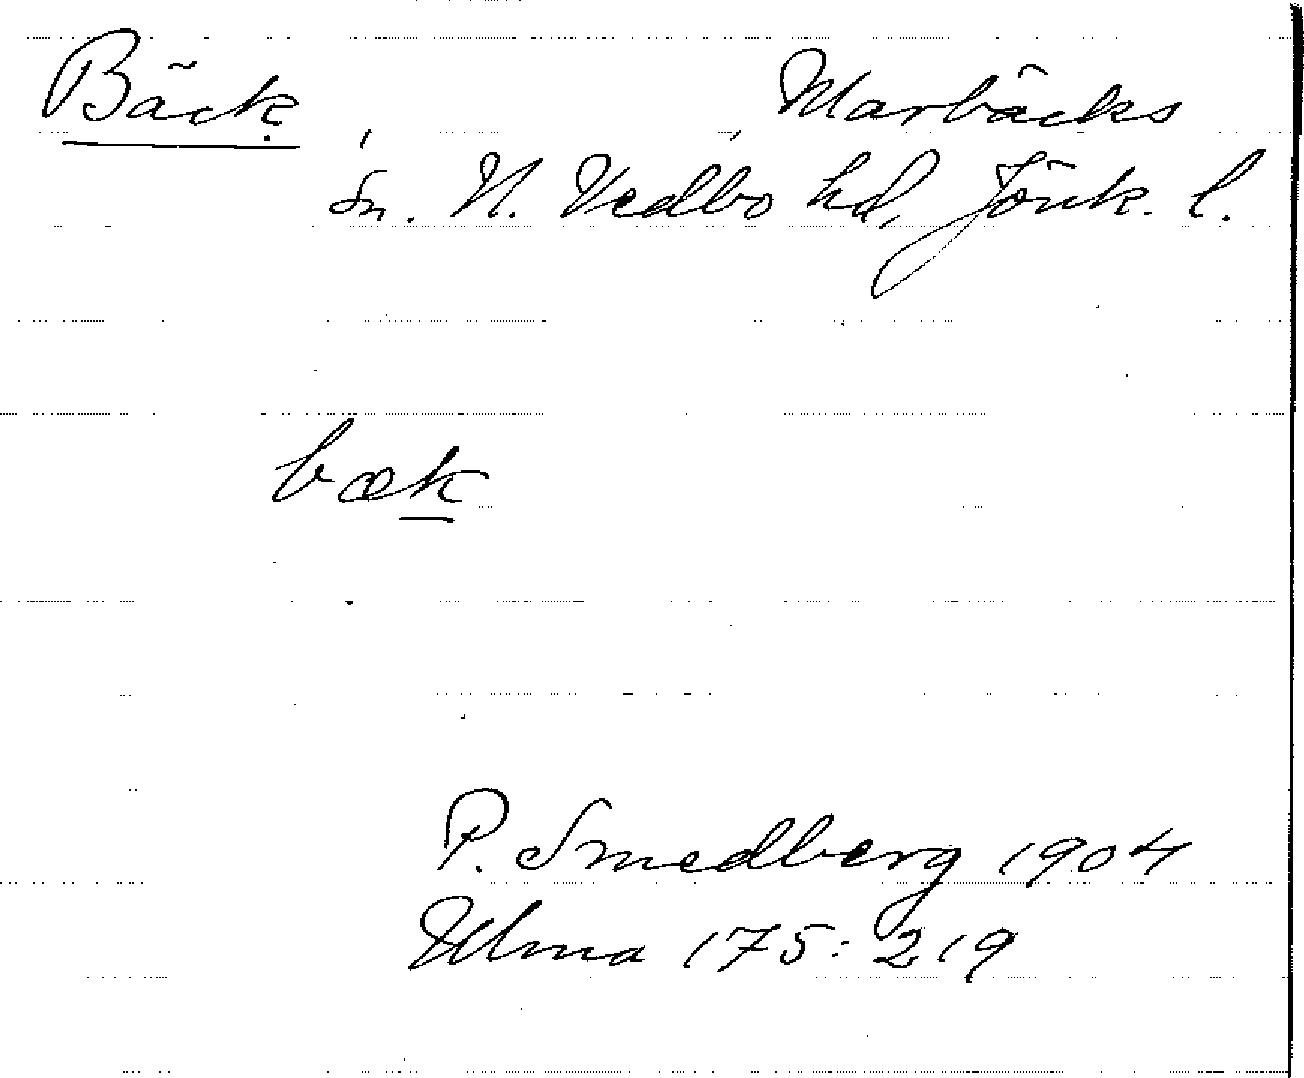 Bäck, Marbäcks
sn. N. Vedbo hd, Jönk. l.
bæk
P. Smedberg 1904
Ulma 175: 219